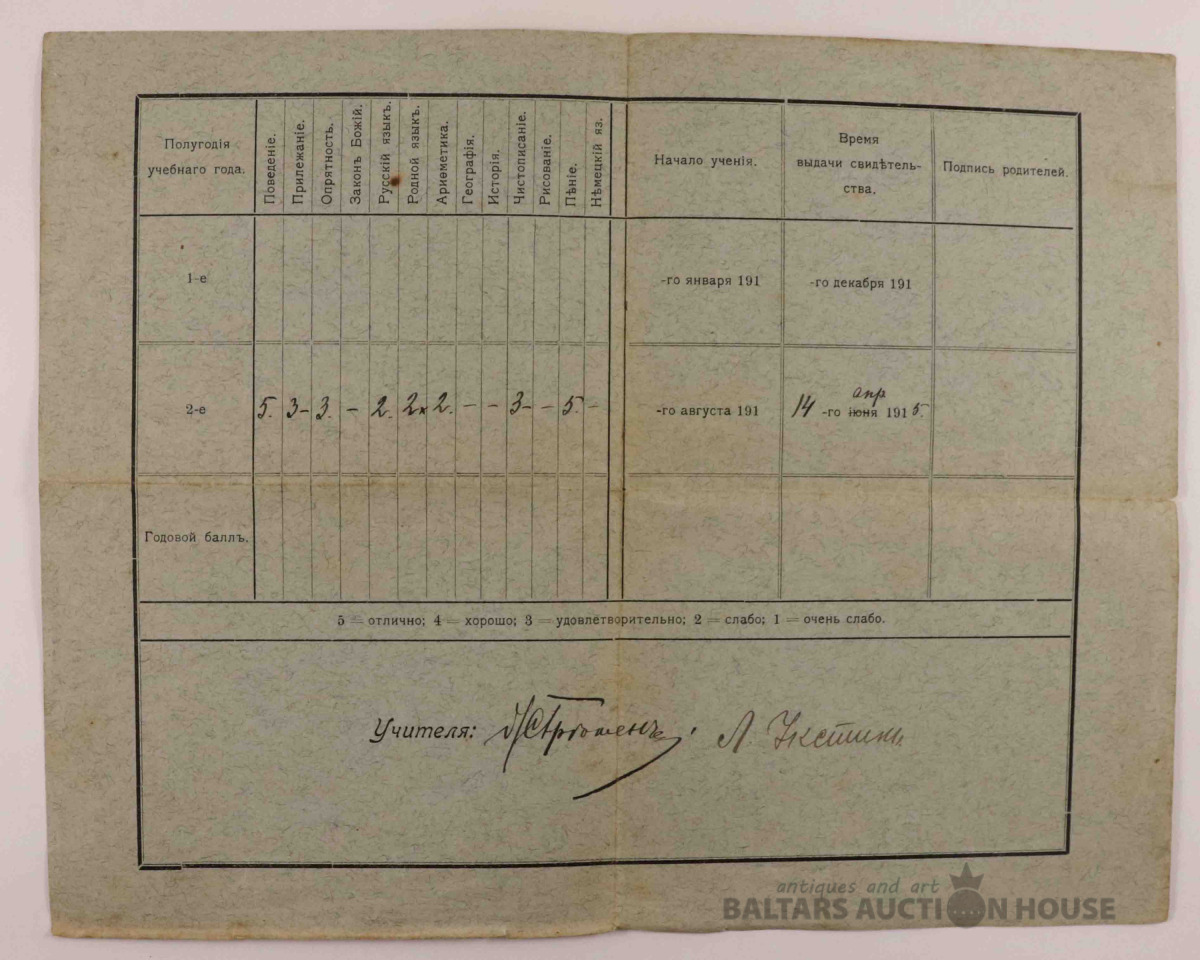 Полугодія
учебнаго года.
Поведеніе.
Прилежаніе.
Опрятность.
Законъ Божій.
Русскій языкъ.
Родной языкъ.
Ариѳметика.
Географія.
Исторія.
Чистописаніе.
Рисованіе.
Пѣніе.
Нѣмецкій яз.
Начало ученія.
Время
выдачи свидѣтель-
ства.
Подпись родителей.
1-е
-го января 191
-го декабря 191
2-е 5. 3- 3. - 2. 2 2. - - 3- - 5. -
-го августа 191
апр
14 -го іюня 1915.
Годовой баллъ.
5 = отлично; 4 = хорошо; 3 = удовлетворительно; 2 = слабо; 1 = очень слабо.
Учителя: Л.
antiques and art
BALTARS AUCTION HOUSE